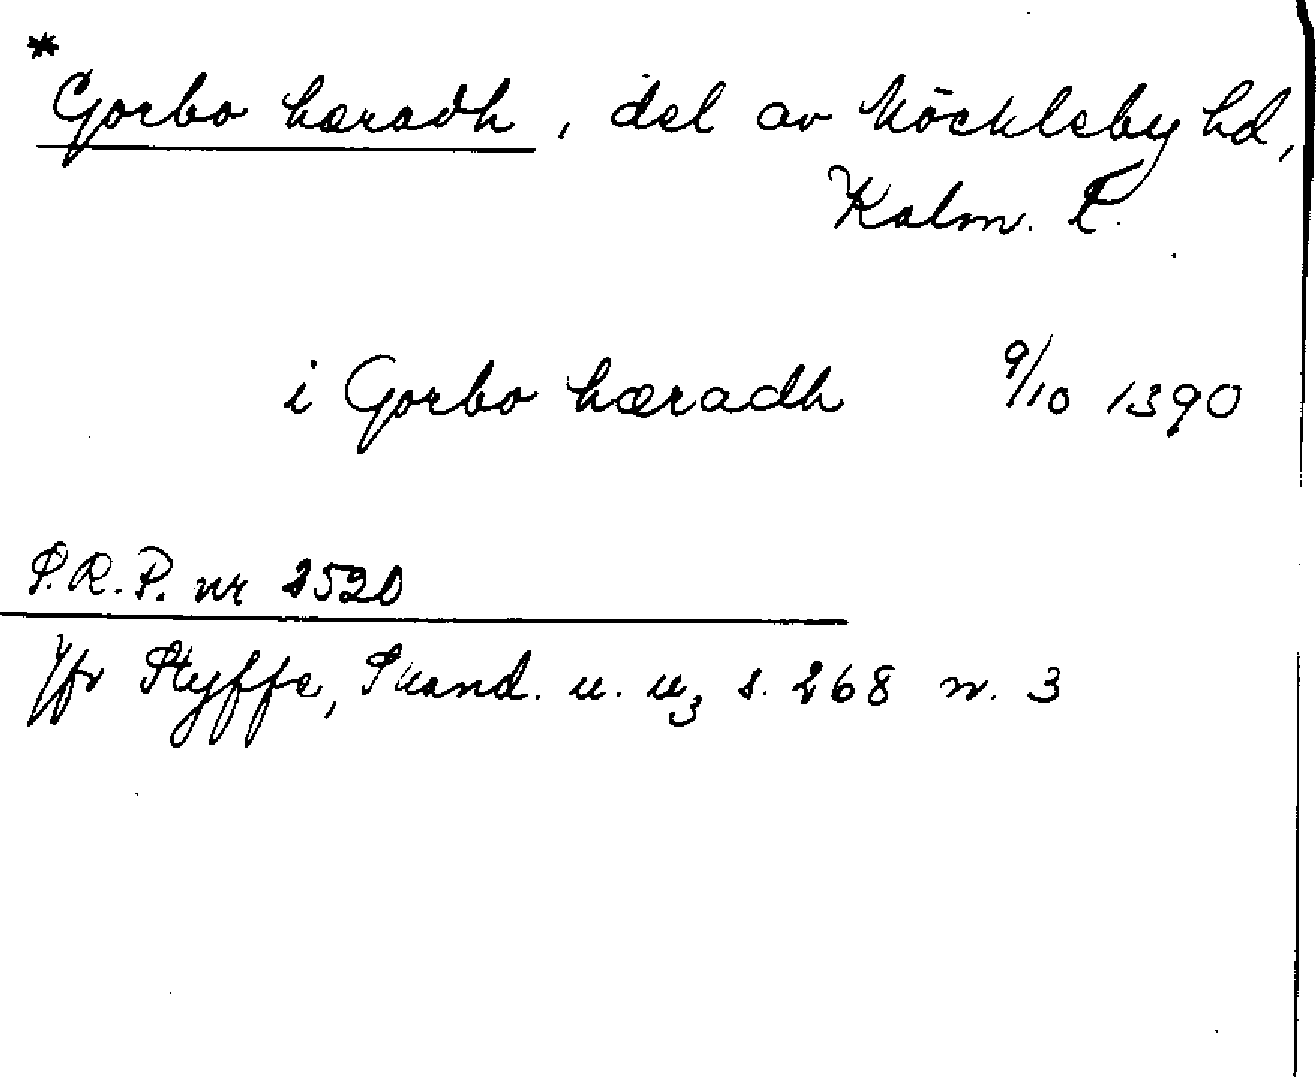 *
Gorbo hæradh, del av Möckleby hd,
Kalm. L.
i Gorbo hæradh 9/10 1390
S.R.P. nr 2520
Jfr Styffe, Skand. u. u3 s. 268 n. 3